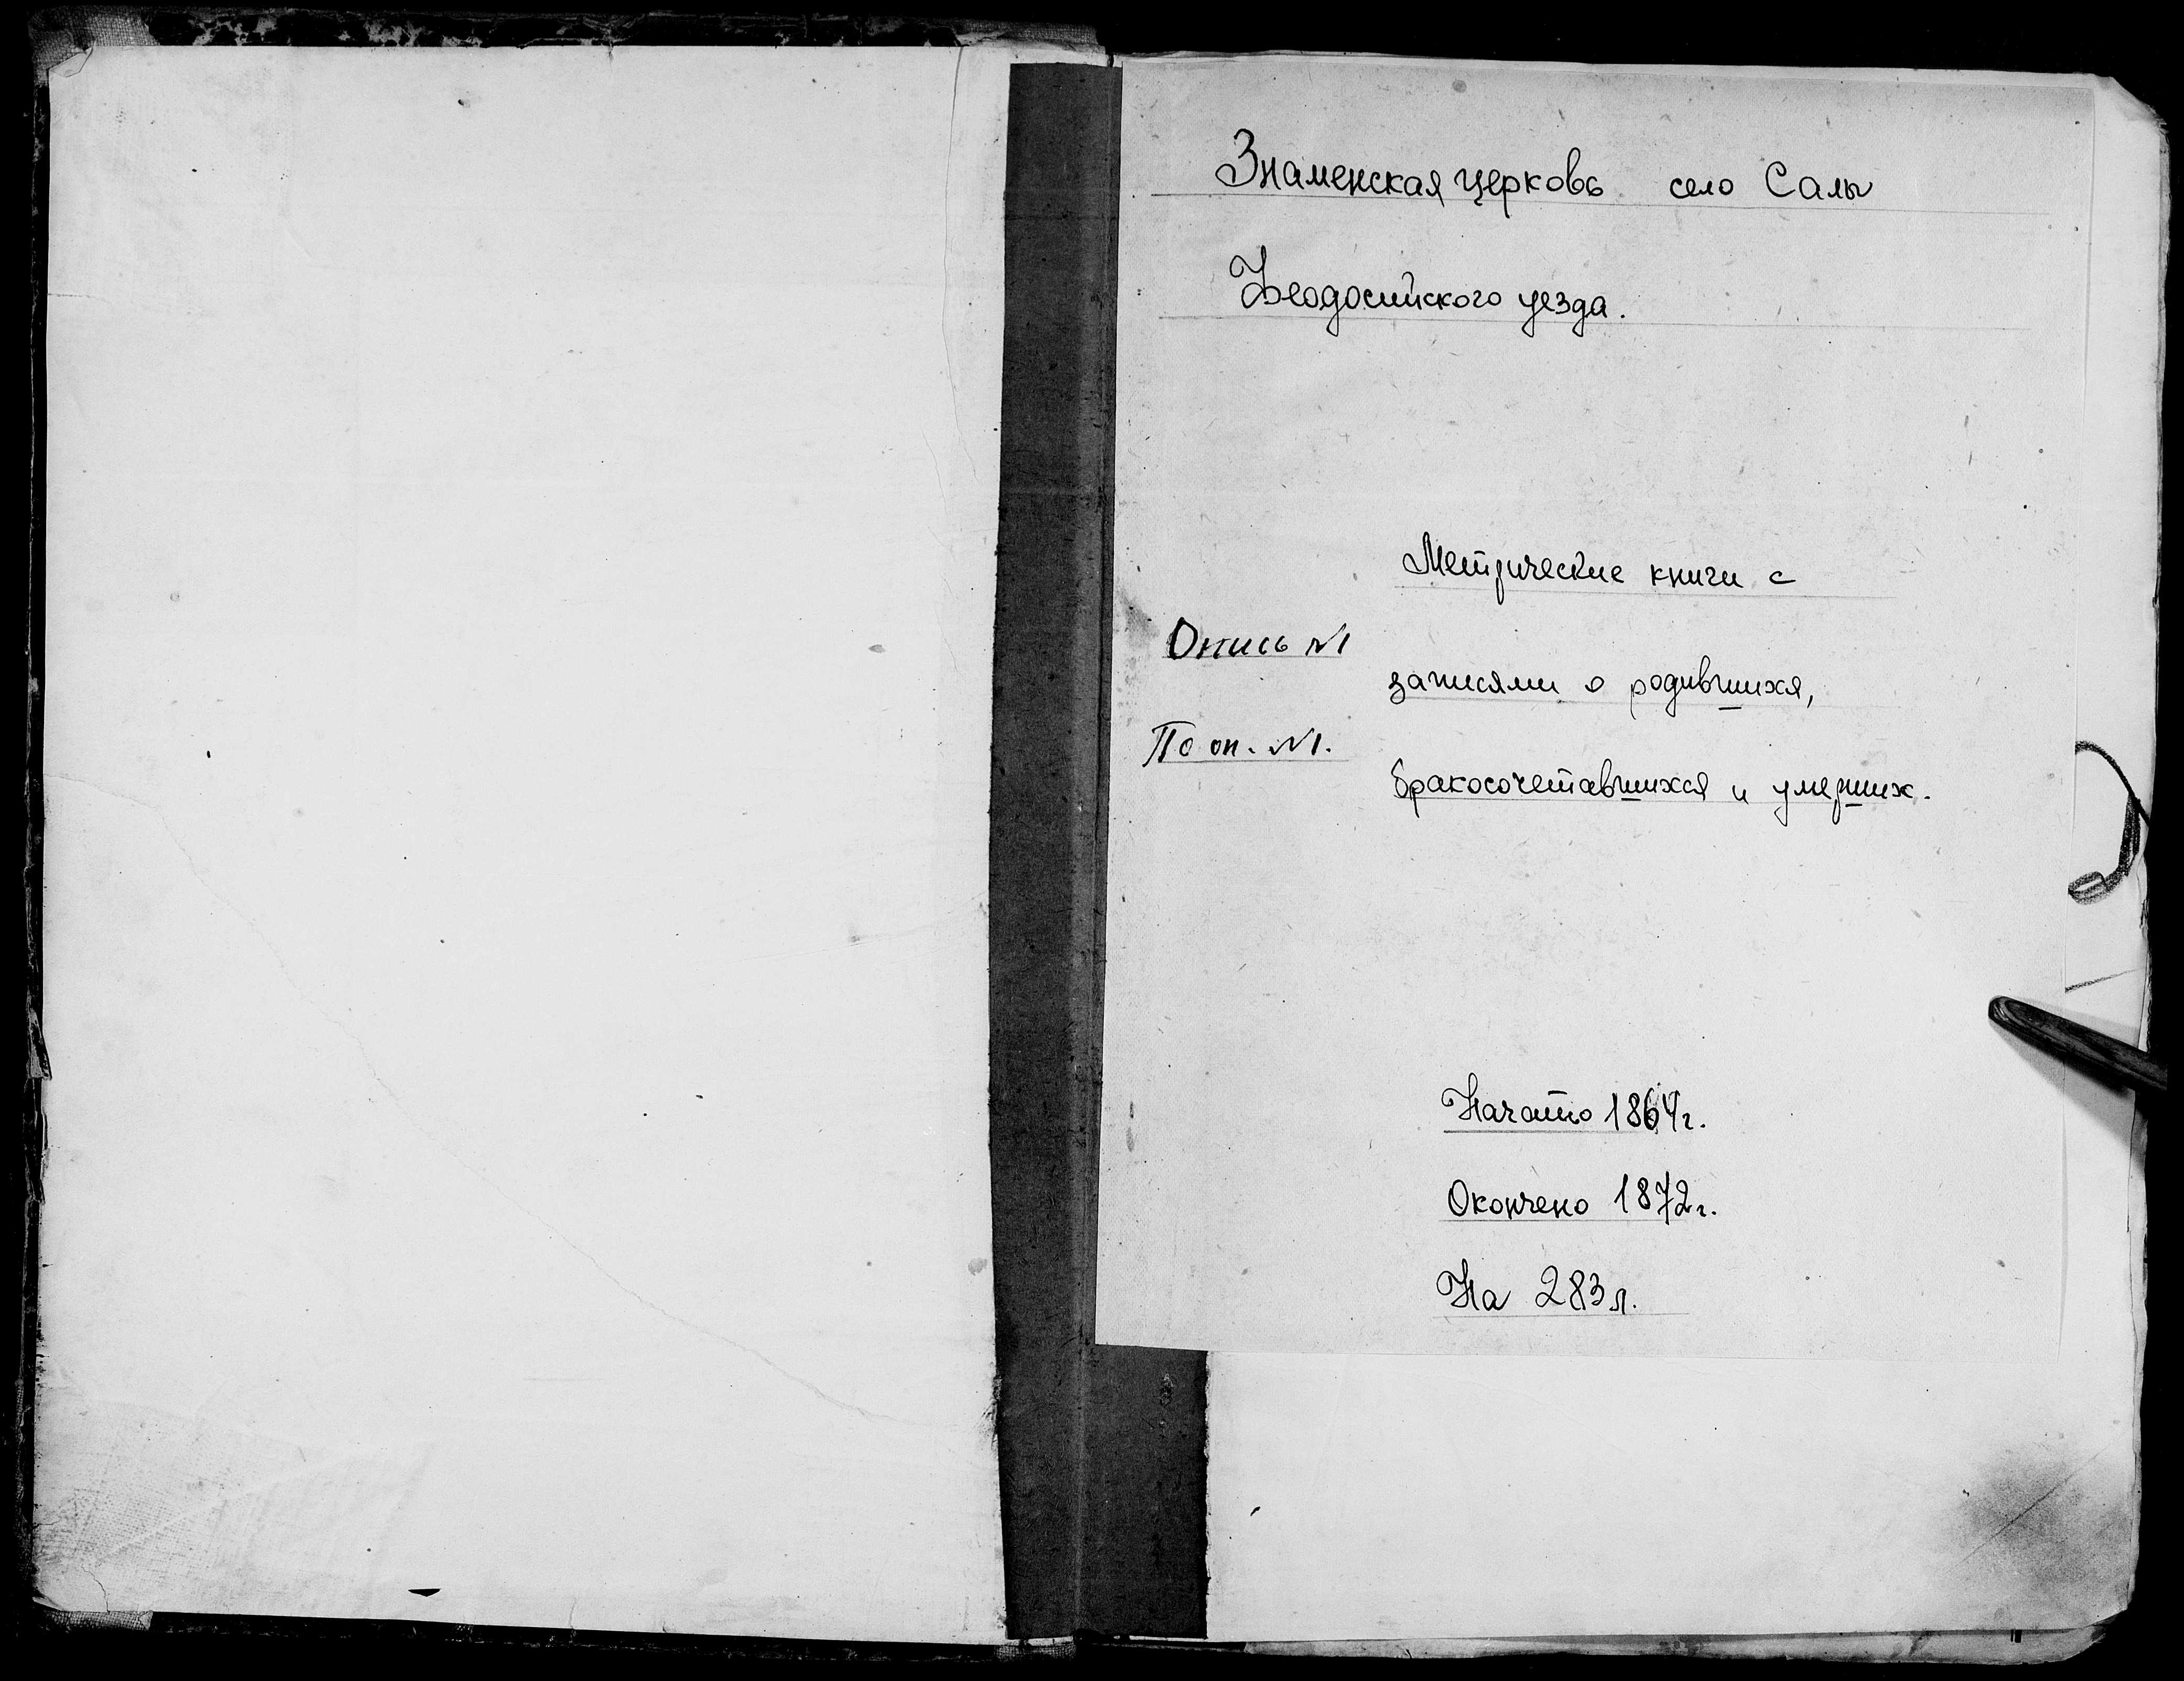 Знаменская церковь село Салы
Феодосийского уезда.
Метрические книги с
Опись №1
записями о родившихся,
По оп. №1.
бракосочетавшихся и умерших.
Начато 1864г.
Окончено 1872г.
На 283л.